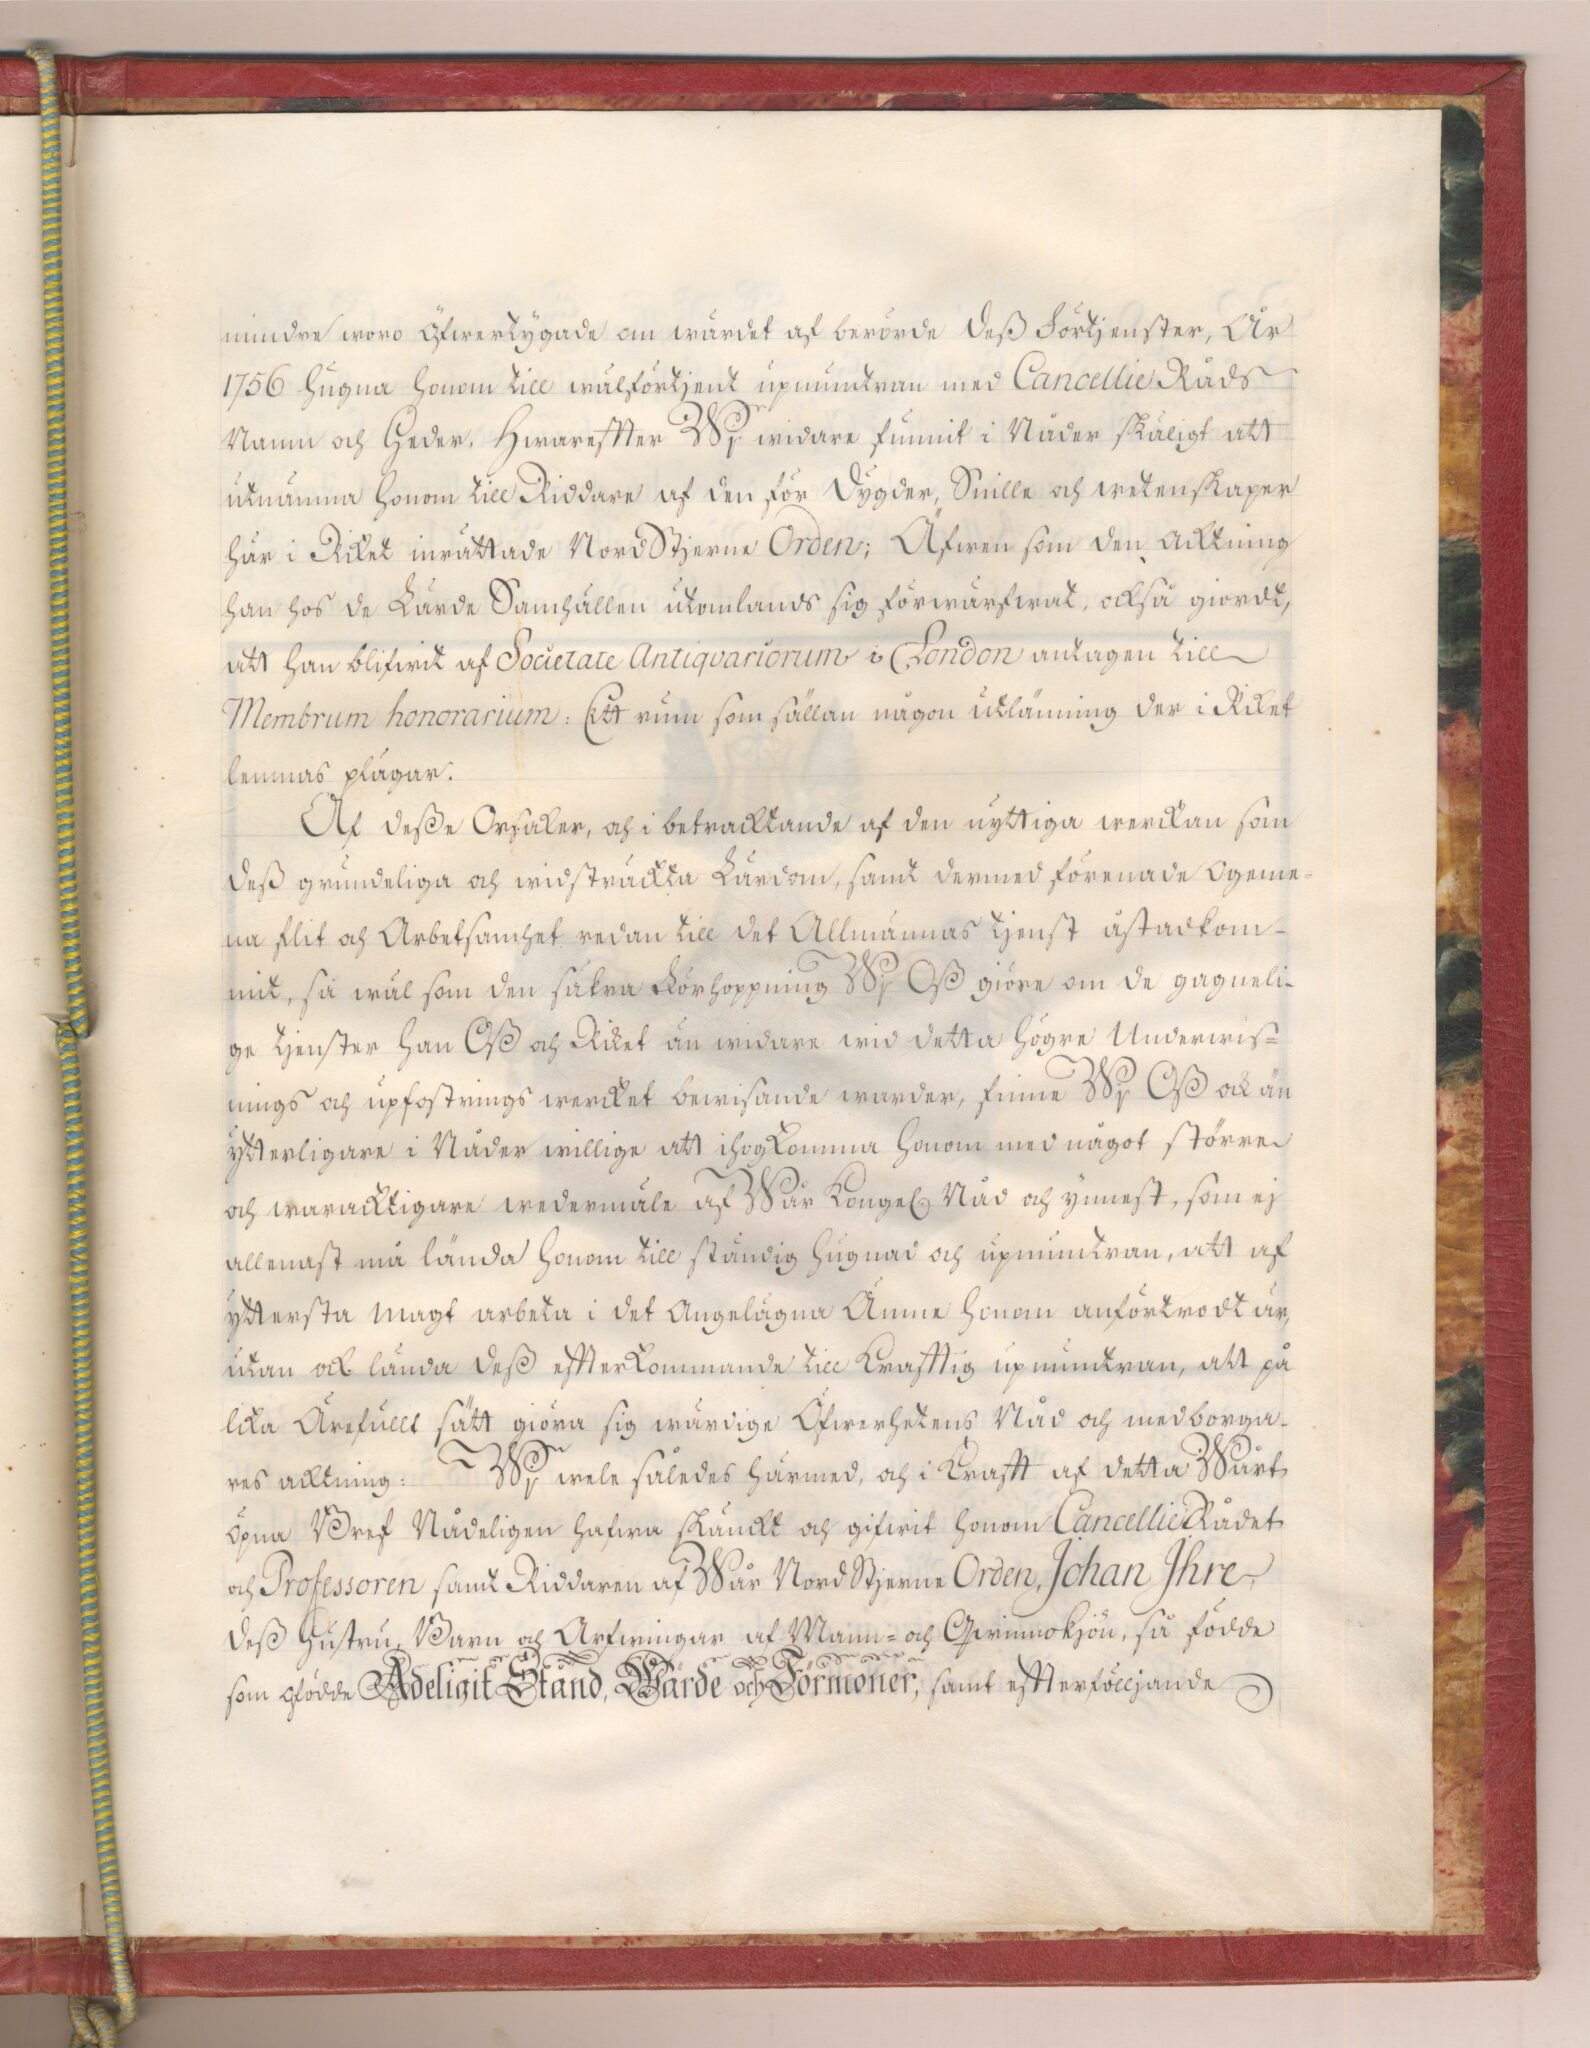 mindre woro öfwertygade om wärdet af berörde Deß Förtjenster, År
1756 hugna honom till wälförtjent upmuntran med Cancellie Råds
Namn och Heder. Hwareffter Wj widare funnit i Nåder skäligt att
utnämna honom till Riddare af den för Dygder, Snille och wetenskaper
här i Riket inrättade NordStjerne Orden; Äfwen som den acktning
han hos de Lärde Samhällen utomlands sig förwärfwat, också giordt,
att han blifwit af Societate Antiquariorum i London antagen till
Membrum honorarium: Ett rum som sällan någon utlänning der i Riket
lemnas plägar.
Af deße Orsaker, och i betracktande af den nyttiga werckan som
Deß grundeliga och widsträckta Lärdom, samt dermed förenade Ogeme-
na flit och Arbetsamhet redan till det Allmännas tjenst åstadkom-
mit, så wäl som den säkra förhoppning Wj Oß giöre om de gagneli-
ge tjenster han Oß och Riket än widare wid detta högre Underwis-
nings och upfostrings wercket bewisande warder, finne Wj Oß ock än
ytterligare i Nåder willige att ihogkomma honom med något större
och waracktigare wedermäle af Wår Kongel. Nåd och ynnest, som ej
allenast må lända honom till ständig hugnad och upmuntran, att af
yttersta magt arbeta i det Angelägna Ämne honom anförtrodt är,
utan ock lända Deß effterkommande till Krafftig upmuntran, att på
lika Ärefullt sätt giöra sig wärdige Öfwerhetens Nåd och medborga-
res acktning: Wj wele således härmed, och i Krafft af detta Wårt
öpna Bref Nådeligen hafwa skänckt och gifwit honom Cancellie Rådet
och Professoren samt Riddaren af Wår NordStjerne Orden, Johan Ihre,
Deß Hustru, Barn och Arfwingar af Mann- och Qwinnokjön, så födde
som ofödde Adeligit Stånd, Wärde och Förmoner, samt effterföljande